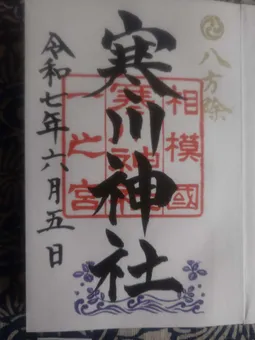 八方除
相模國
寒川神社
一之宮
寒川神社
令和七年六月五日